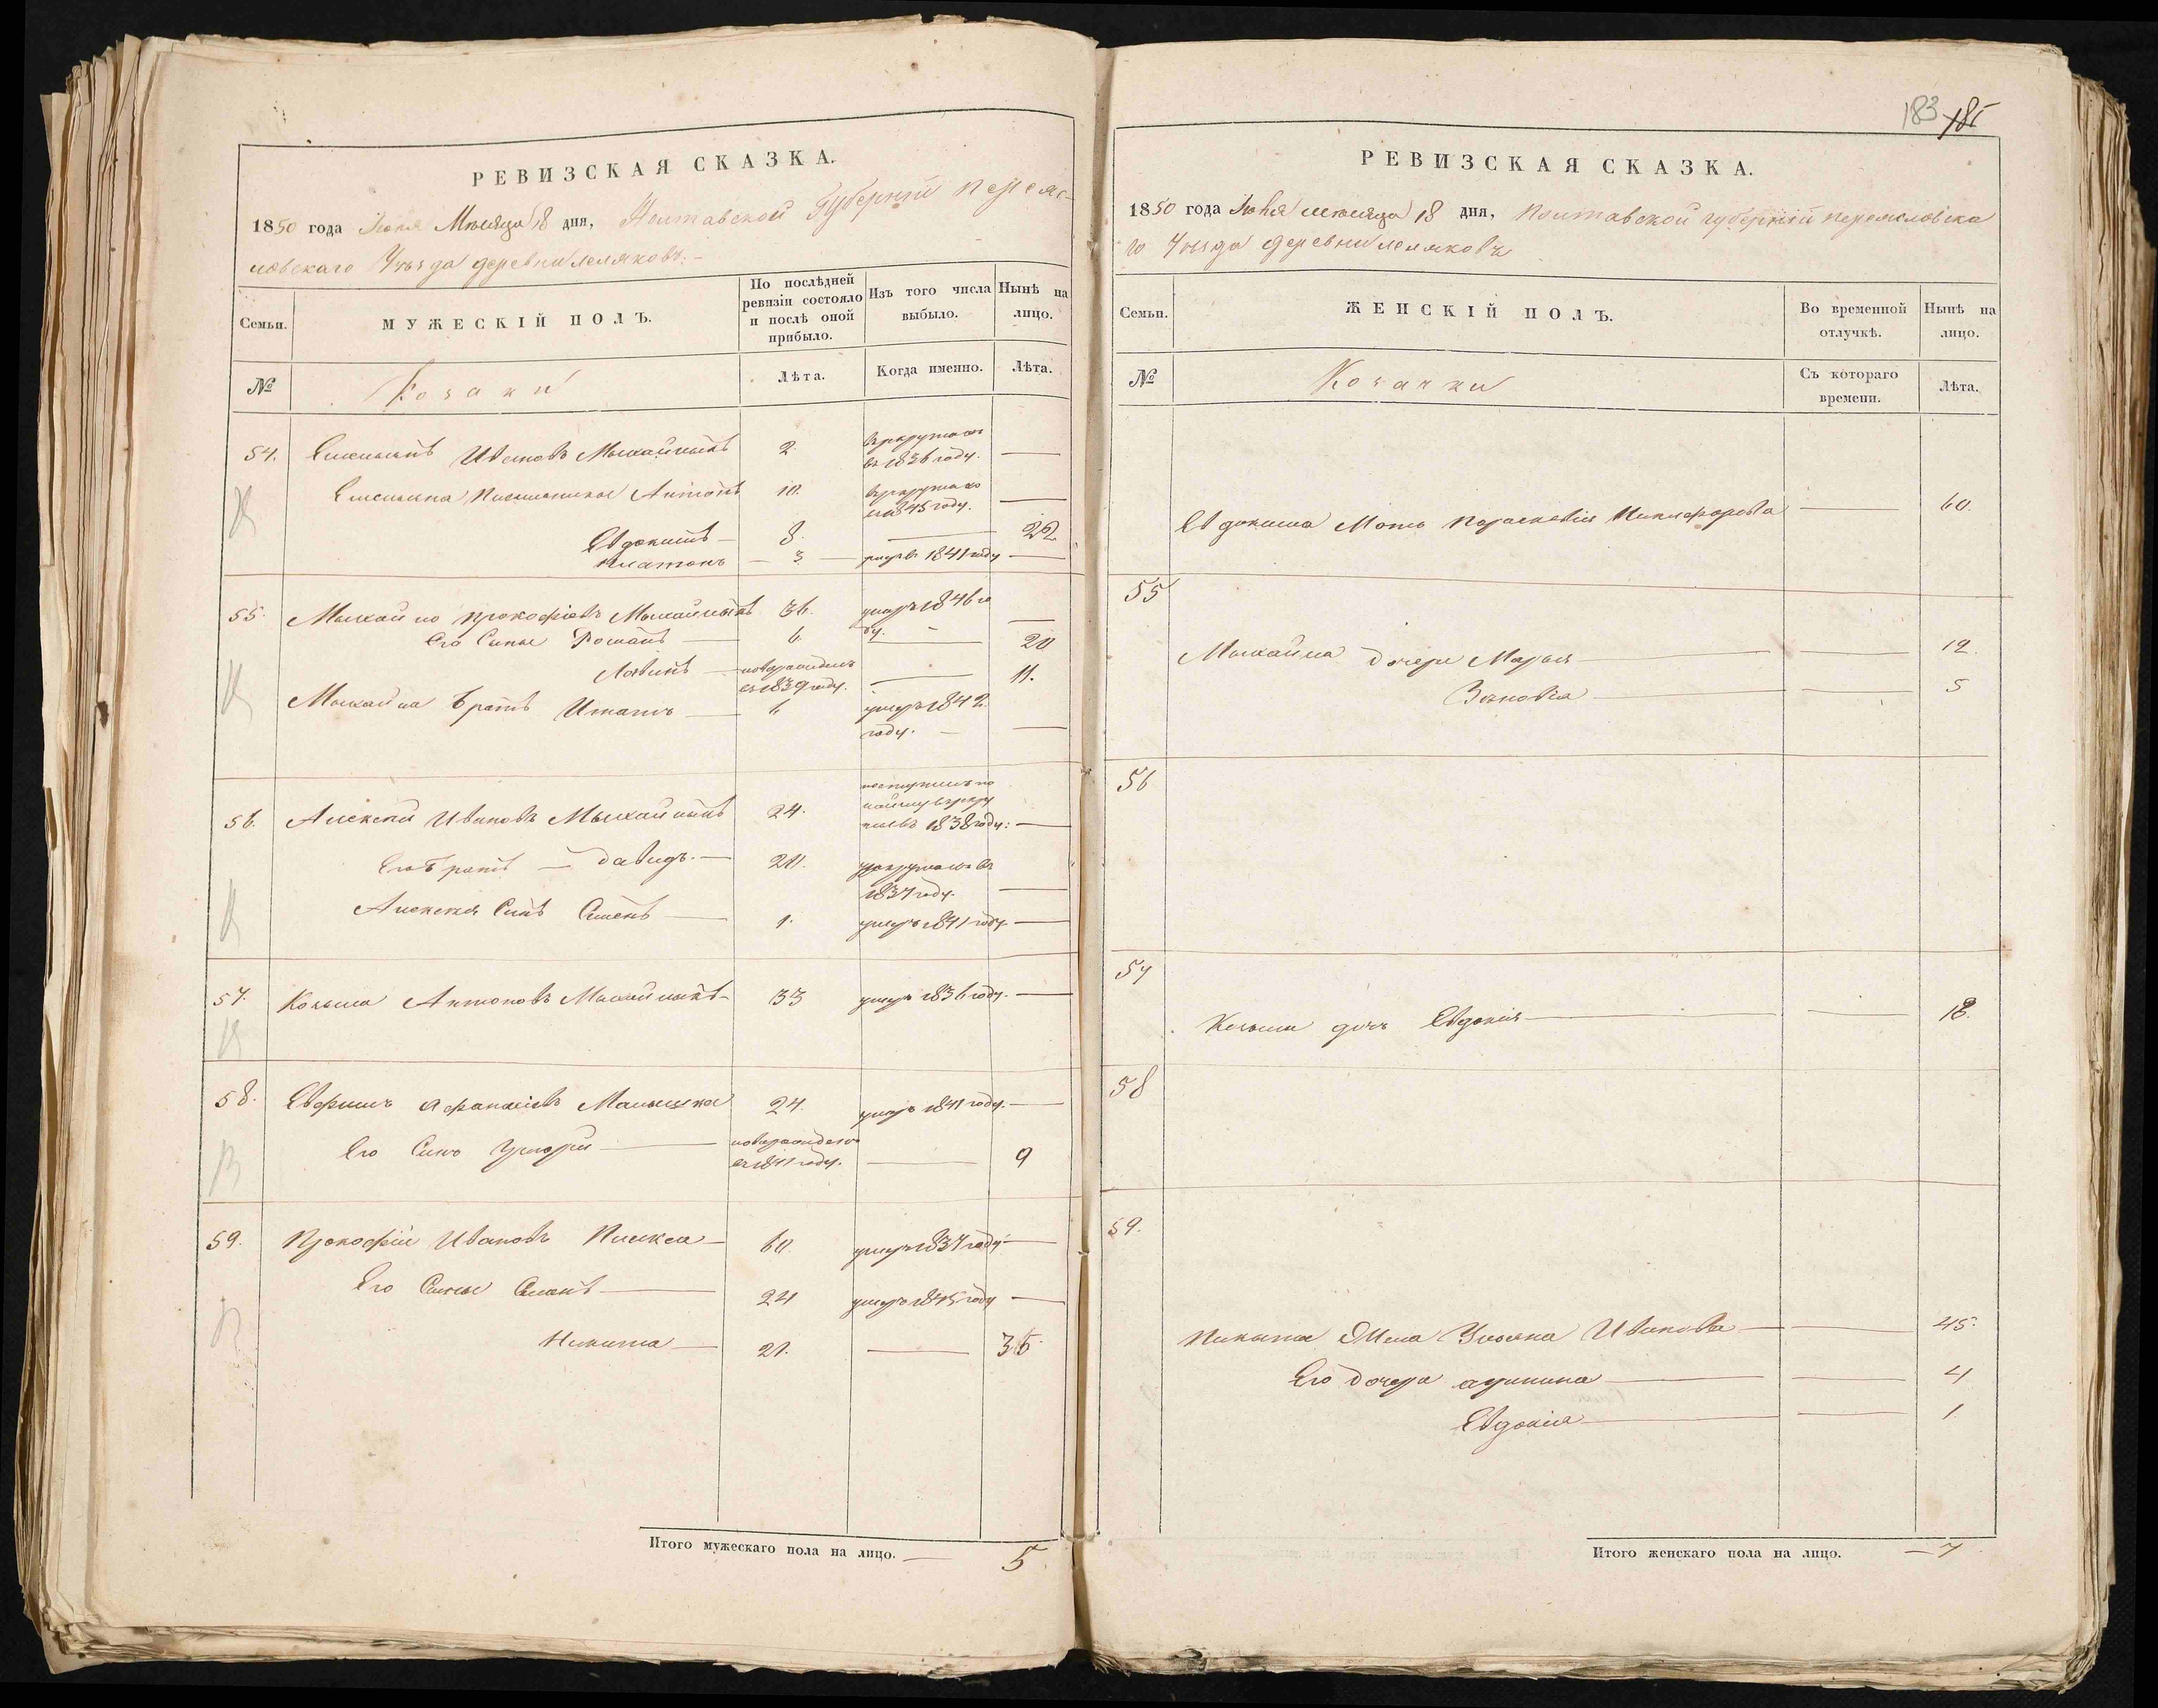 РЕВИЗСКАЯ СКАЗКА.
1850 года Іюня Мѣсяца 18 дня, Полтавской Губерніи Переяс-
ловскаго Уѣзда деревни Леляковъ.
Семьи.
МУЖЕСКІЙ ПОЛЪ.
По послѣдней ревизіи состояло и послѣ оной прибыло.
Изъ того числа выбыло.
Нынѣ на лицо.
№
Козаки
Лѣта.
Когда именно.
Лѣта.
54. Иванов 2. в 1836 году. —
Антонъ 10. в 1845 году. —
Евдокимъ — 8. — 22
Платонъ — 3 — умръ в 1841 году —
55. Михайло Прокофіевъ 36. умръ 1846 го
ду. —
Его Сыны Романъ — 6. — 20
Логвинъ — новорожденъ
в 1839 году. — 11.
Михайла Братъ Игнатъ — 6 умръ 1842
году. — —
56. Алексей Ивановъ 24. поступилъ по
найму в рекру
ты въ 1838 году: —
Его Братъ — Давидъ. — 20. в
1837 году. —
Алексея Синъ Семенъ — 1. умръ 1841 году —
57. Козьма Антоновъ 33 умръ 1836 году. —
58. Евфимъ Афанасіевъ 24. умръ 1841 году. —
Его Синъ Григорій — новорожденъ
в 1841 году. — 9
59. Прокофій Ивановъ 60. умръ 1837 году —
Его Сыны Семенъ — 24 умръ 1845 году —
Никита — 21. — 35
Итого мужескаго пола на лицо. — 5
183 185
РЕВИЗСКАЯ СКАЗКА.
1850 года Іюня мѣсяца 18 дня, Полтавской губерніи Переясловска
го Уѣзда деревни Леляковъ
Семьи.
ЖЕНСКІЙ ПОЛЪ.
Во временной отлучкѣ.
Нынѣ на лицо.
№
Козачки
Съ котораго времени.
Лѣта.
Евдокима Мать Параскевія Никифорова — 60.
55
Михайла дочери Марья — — 12.
Зѣновія — — 5
56
57
Козьмы дочь Евдокія — — 18.
58
59.
Никиты Жена Ульяна Иванова — — 45.
Его дочери — — 4
Евдокія — — 1
Итого женскаго пола на лицо. — 7